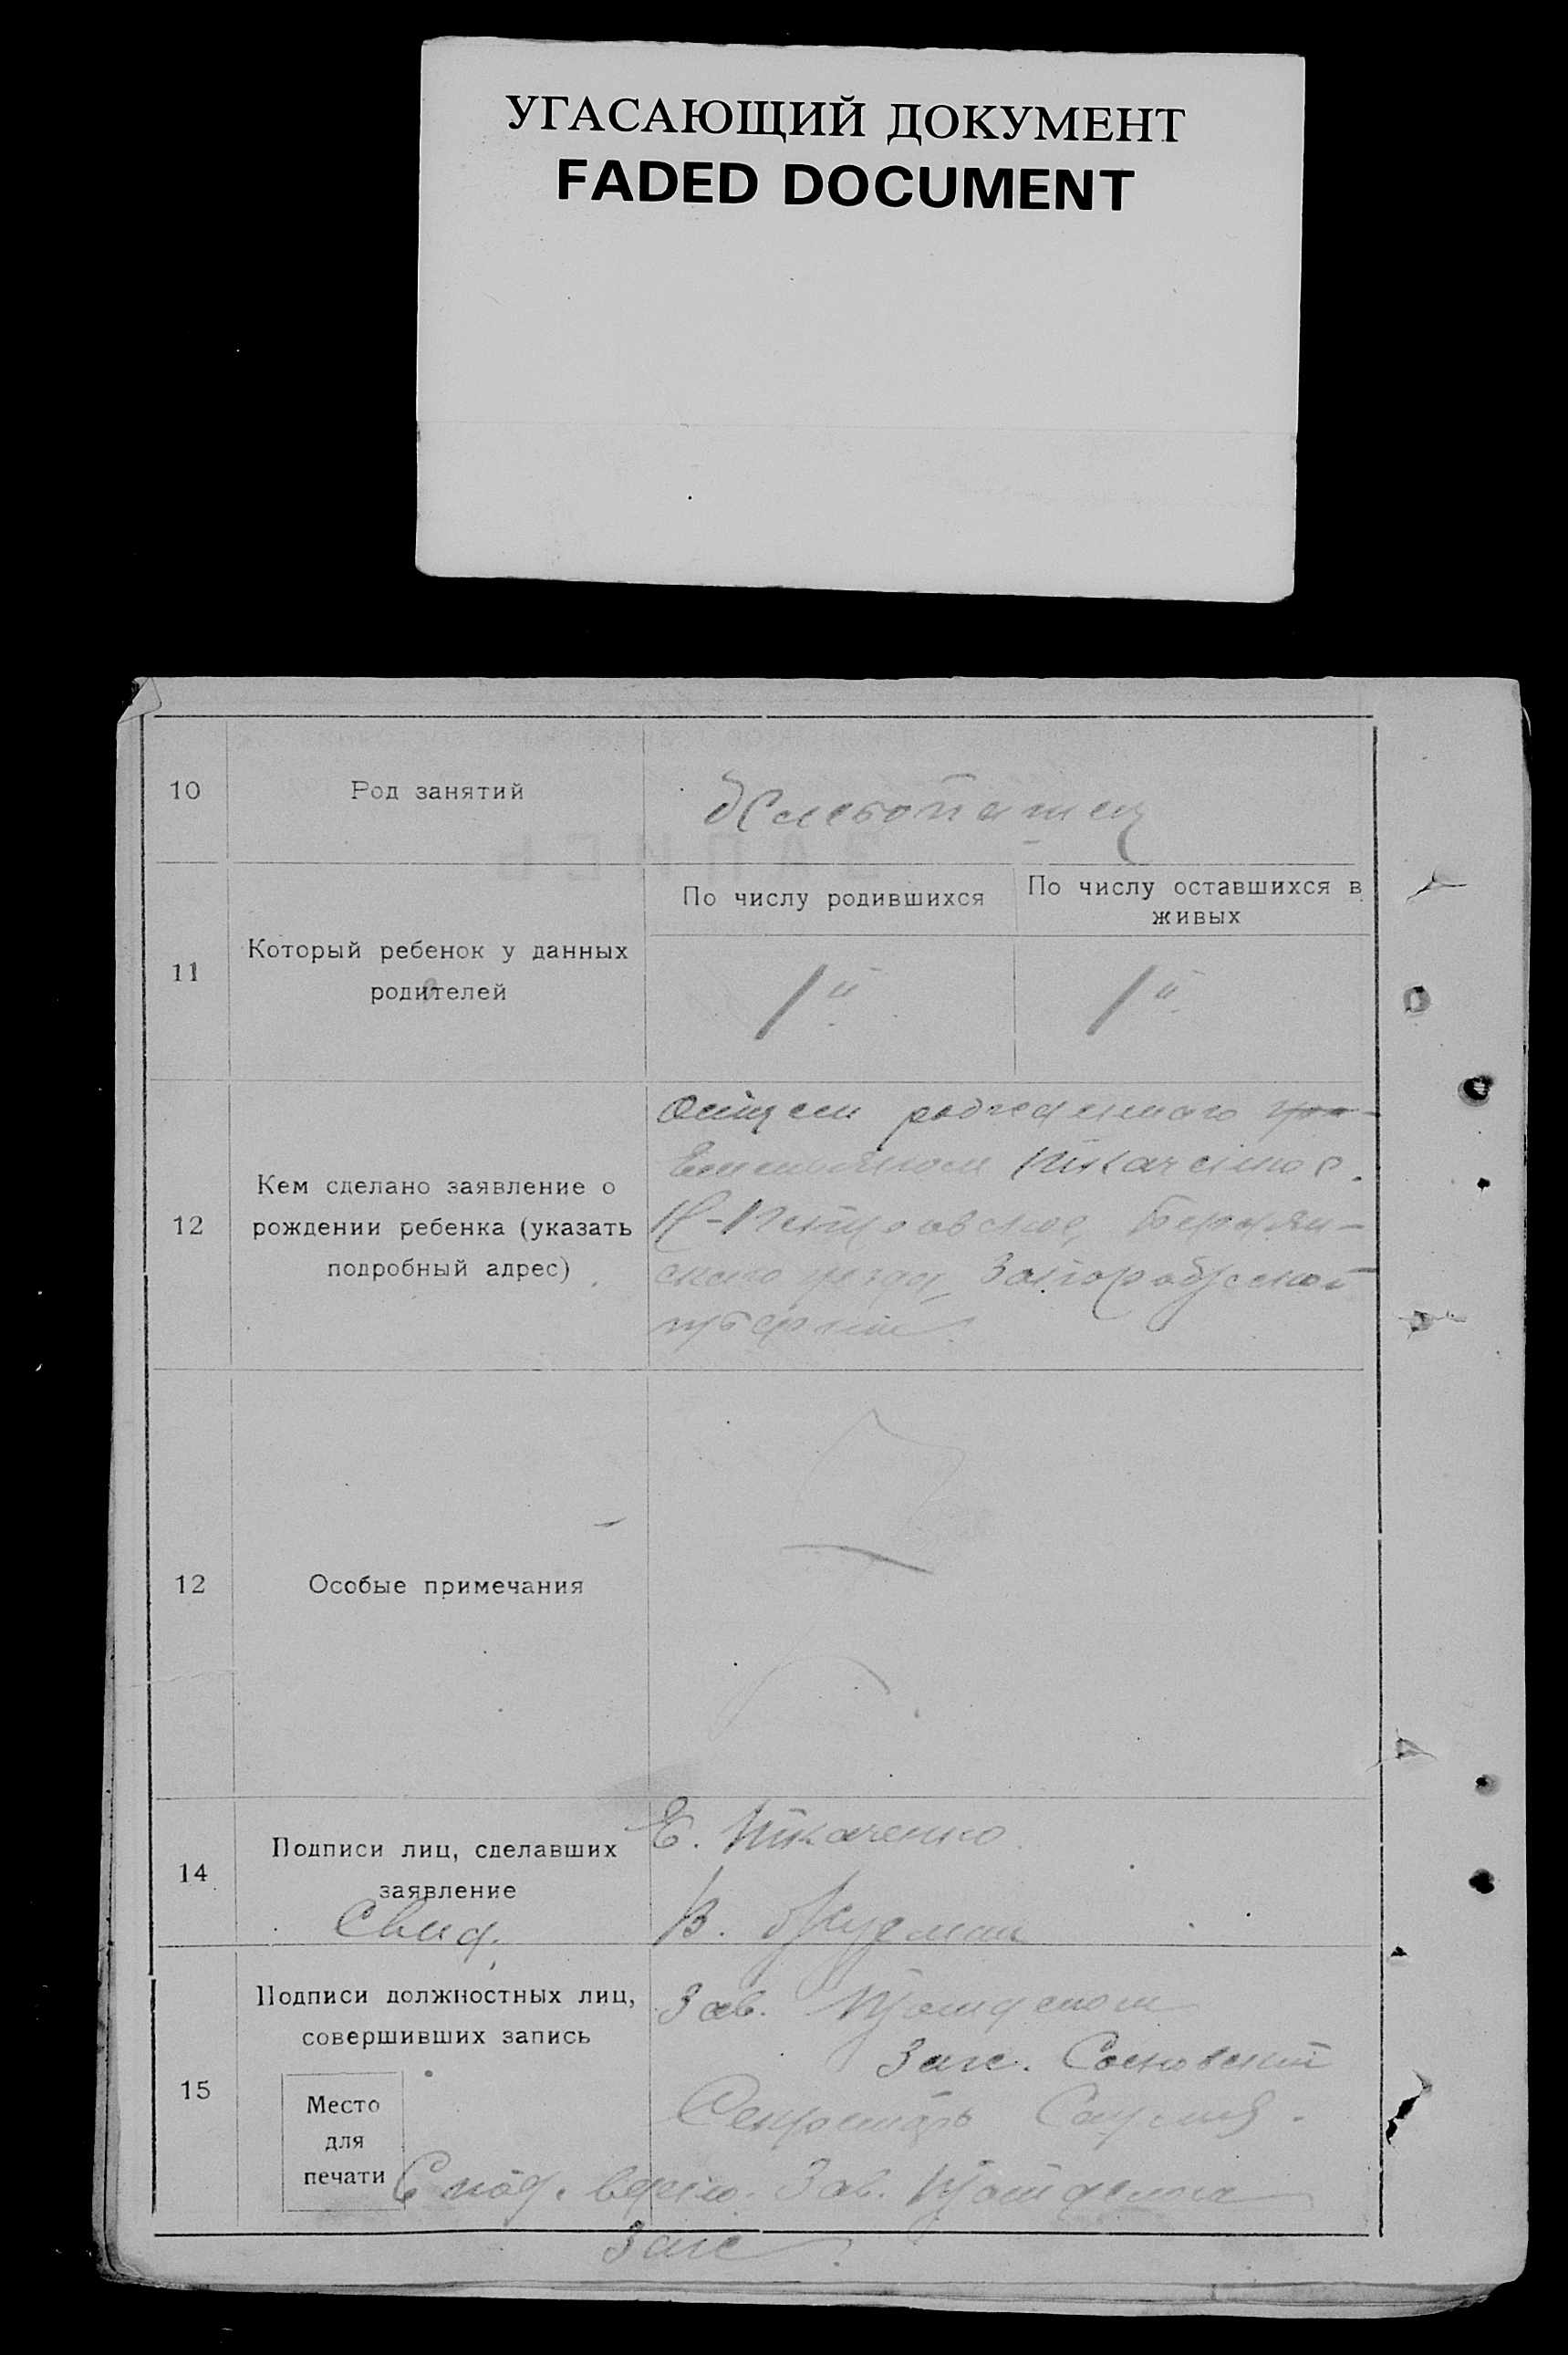 УГАСАЮЩИЙ ДОКУМЕНТ
FADED DOCUMENT
10
Род занятий
Хлебопашец
11
Который ребенок у данных
родителей
По числу родившихся
По числу оставшихся в
живых
1й
1й
12
Кем сделано заявление о
рождении ребенка (указать
подробный адрес)
Отцем рожденного
Ткаченко
Н-Петровское, Бердян-
ского уезда, Запорожской
губернии.
12
Особые примечания
14
Подписи лиц, сделавших
заявление
Свид.
Е. Ткаченко
В.
15
Подписи должностных лиц,
совершивших запись
Место
для
печати
Зав.
Загс. Сосновский
Секретарь
С под. верно. Зав.
Загс